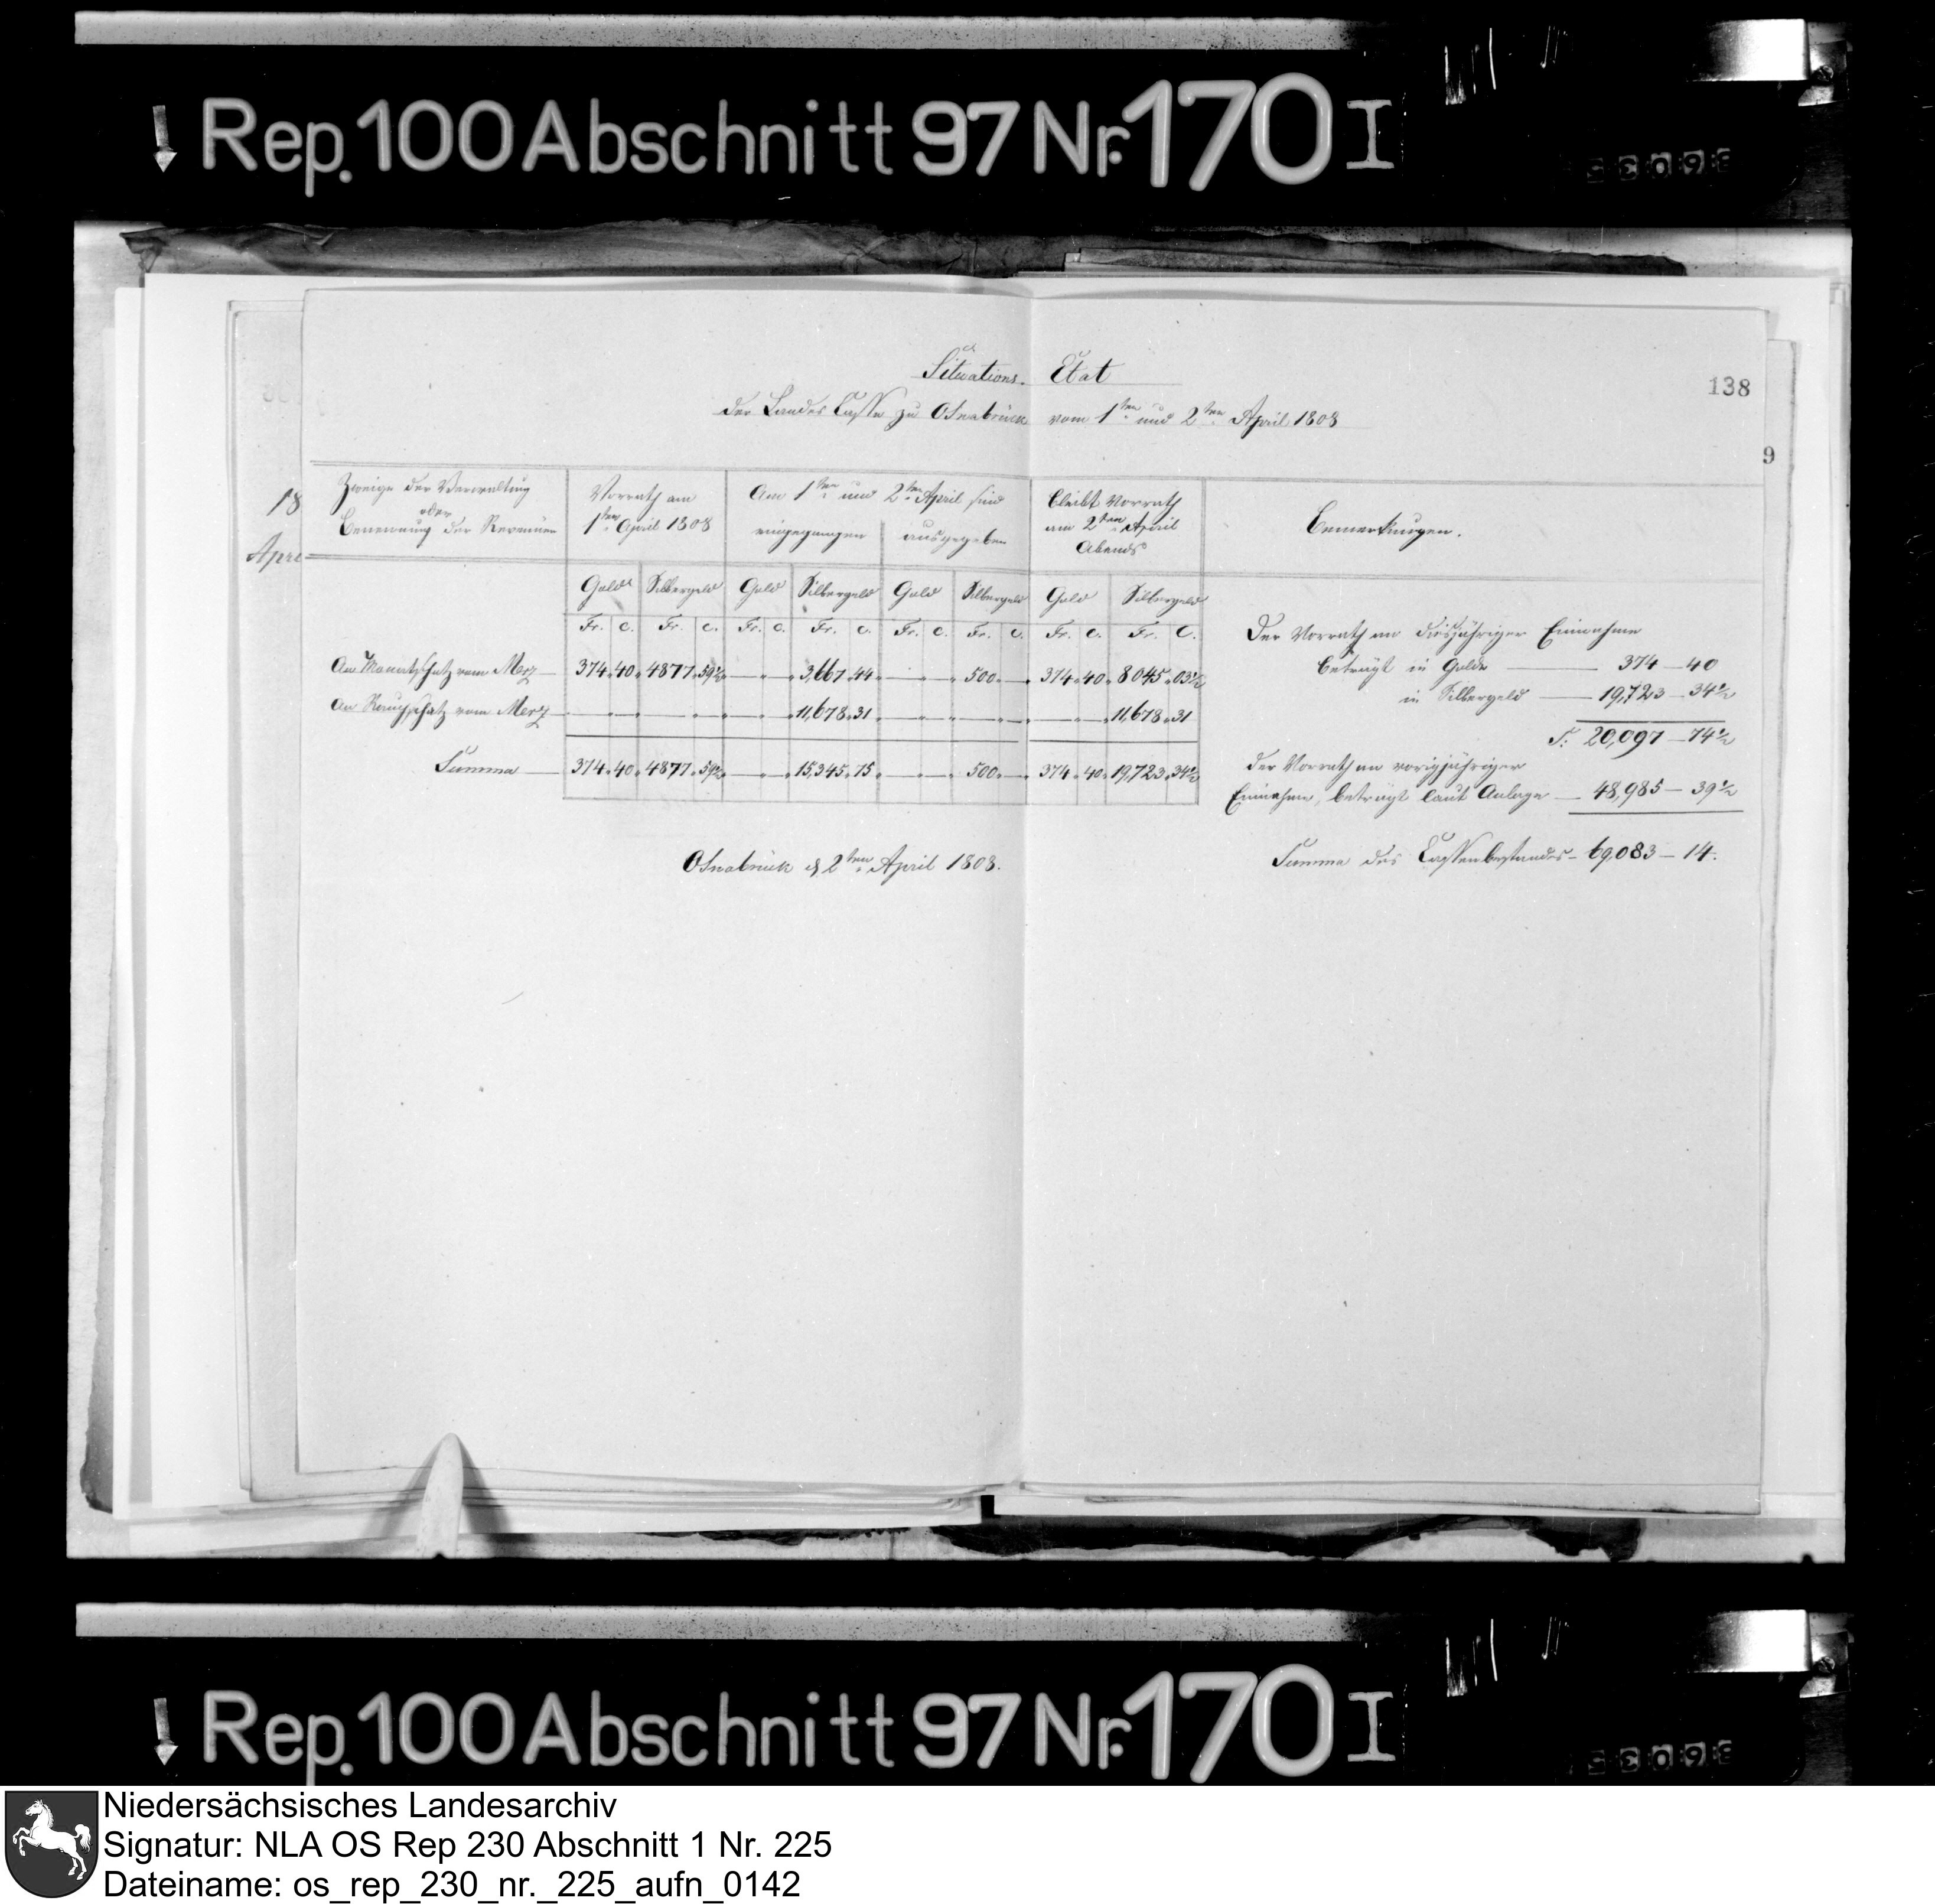 Rep. 100 Abschnitt 97 Nr. 170 I
Situations- Etat
138
der Landes Casse zu Osnabrück vom 1ten und 2ten April 1808
9
18
Apri
Zweige der Verwaltung
oder
Benennung der Revenuen
Vorrath am
1ten April 1808
Am 1ten und 2ten April sind
eingegangen ausgegeben
bleibt Vorrath
am 2ten April
Abends
Bemerkungen.
Gold Silbergeld Gold Silbergeld Gold Silbergeld Gold Silbergeld
Fr. C. Fr. C. Fr. C. Fr. C. Fr. C. Fr. C. Fr. C. Fr. C.
An Monatschatz vom Merz 374 40 4877 59½ — — 3,667 44 — — 500 — 374 40 8045 03½
An Rauchschatz vom Merz — — — — — — 11,678 31 — — — — — — 11,678 31
Summa 374 40 4877 59½ — — 15,345 75 — — 500 — 374 40 19,723 34½
Der Vorrath an diesjähriger Einnahme
beträgt in Golde — 374 — 40
in Silbergeld — 19,723 — 34½
S: 20,097 — 74½
der Vorrath an vorigjähriger
Einnahme, beträgt laut Anlage — 48,985 — 39½
Summa des Cassenbestandes — 69,083 — 14.
Osnabrück d. 2ten April 1808.
Rep. 100 Abschnitt 97 Nr. 170 I
Niedersächsisches Landesarchiv
Signatur: NLA OS Rep 230 Abschnitt 1 Nr. 225
Dateiname: os_rep_230_nr._225_aufn_0142